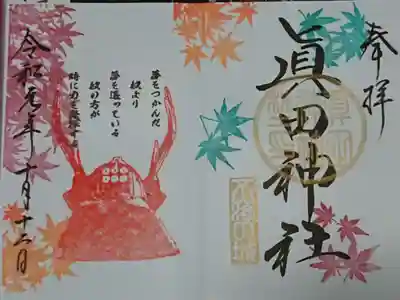 奉拝
眞田神社
不落の城
夢をつかんだ
奴より
夢を追っている
奴の方が
時に力を発揮する
令和元年十月十二日